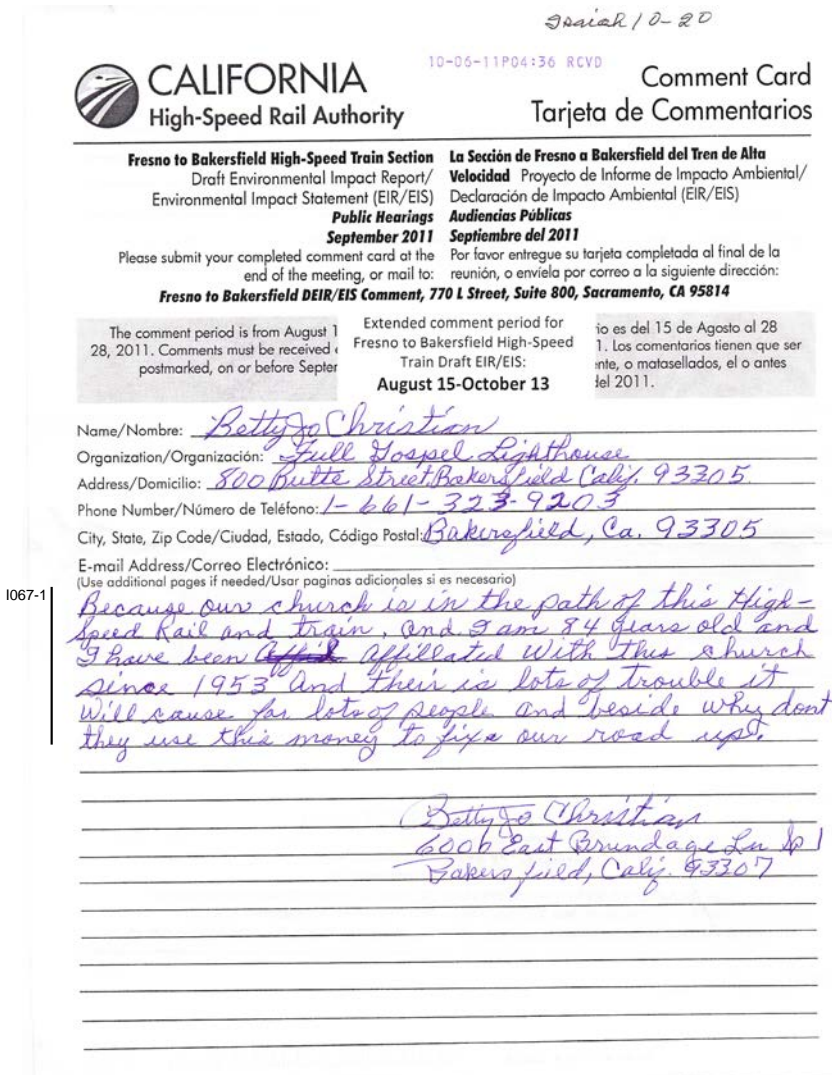 Isaiah 10-20
10-06-11P04:36 RCVD
CALIFORNIA
High-Speed Rail Authority
Comment Card
Tarjeta de Commentarios
Fresno to Bakersfield High-Speed Train Section
Draft Environmental Impact Report/
Environmental Impact Statement (EIR/EIS)
Public Hearings
September 2011
Please submit your completed comment card at the
end of the meeting, or mail to:
La Sección de Fresno a Bakersfield del Tren de Alta
Velocidad Proyecto de Informe de Impacto Ambiental/
Declaración de Impacto Ambiental (EIR/EIS)
Audiencias Públicas
Septiembre del 2011
Por favor entregue su tarjeta completada al final de la
reunión, o envíela por correo a la siguiente dirección:
Fresno to Bakersfield DEIR/EIS Comment, 770 L Street, Suite 800, Sacramento, CA 95814
The comment period is from August 1
28, 2011. Comments must be received
postmarked, on or before Septer
Extended comment period for
Fresno to Bakersfield High-Speed
Train Draft EIR/EIS:
August 15-October 13
io es del 15 de Agosto al 28
1. Los comentarios tienen que ser
nte, o matasellados, el o antes
del 2011.
Name/Nombre: Betty Jo Christian
Organization/Organización: Full Gospel Lighthouse
Address/Domicilio: 800 Butte Street Bakersfield Calif. 93305
Phone Number/Número de Teléfono: 1-661-323-9203
City, State, Zip Code/Ciudad, Estado, Código Postal: Bakersfield, Ca. 93305
E-mail Address/Correo Electrónico:
(Use additional pages if needed/Usar paginas adicionales si es necesario)
I067-1
Because our church is in the path of this High-
Speed Rail and train, and I am 84 years old and
I have been affillated with this church
since 1953 and their is lots of trouble it
will cause for lots of people and beside why dont
they use this money to fix our road up.
Betty Jo Christian
6006 East Brundage Ln Sp 1
Bakersfield, Calif. 93307